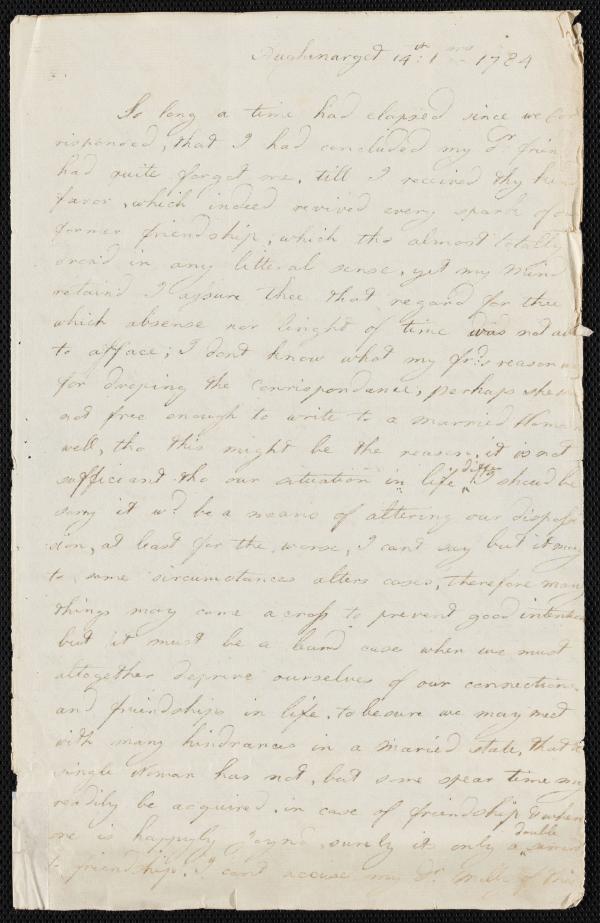 14th 1 mo 1784
So long a time had elapsed since we cor
risponded, that I had concluded my dr frien
had quite forgot me, till I received thy kin
favor, which indeed revived every spark of ou
former friendship, which tho almost totally
in any litteral sense, yet my mind
retain'd I assure thee that regard for thee
which absense nor lenght of time was not abl
to afface; I dont know what my frds reason w
for droping the corrispondance, perhaps she w
not free enough to write to a married Woma
well, tho this might be the reason, it is not
sufficeant tho our situation in life diffrs I shoud be
sorry it wd be a means of altering our disposi
sion, at least for the worse, I cant say but it may
to some circumstances alters cases, therefore many
things may come across to prevent good intention
but it must be a hard case when we must
altogether deprive ourselves of our connections
and friendships in life, to be sure we may meet
with many hindrances in a married state, that a
single Woman has not, but some spear time may
readily be acquired in case of friendship & when
one is happyly joynd, surely its only a double
to friendship. I cant accuse my Dr of this